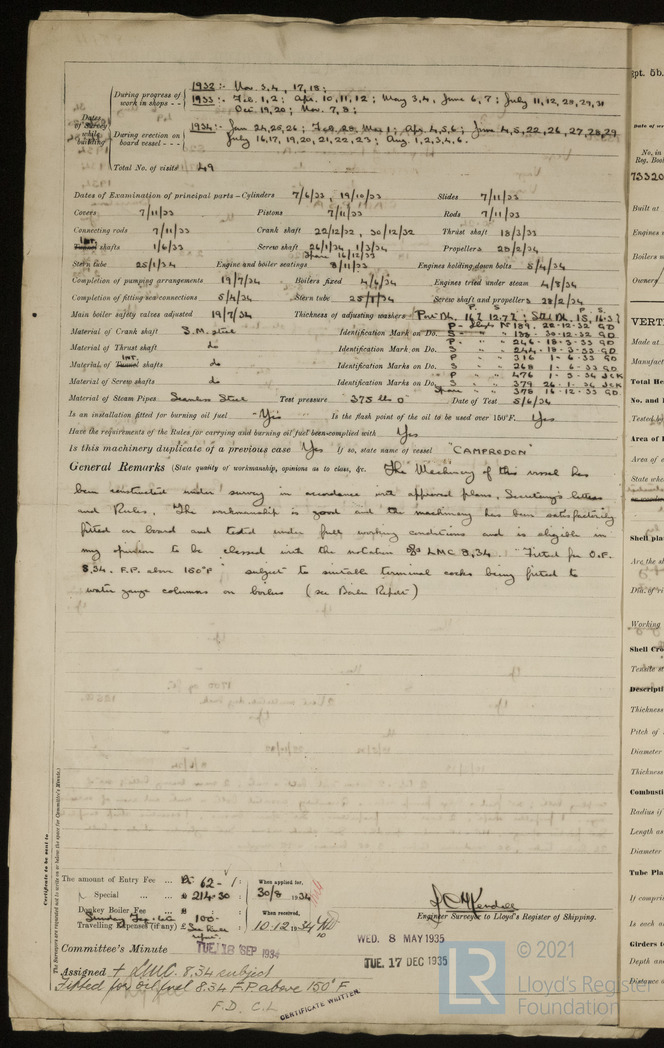 1932:- Nov. 3.4, 17,18;
During progress of work in shops - -
1933:- Feb. 1,2; Apr. 10,11,12; May 3,4, June 6,7; July 11,12,
Dec. 19,20; Nov. 7,8;
Dates of Survey while building
During erection on board vessel - - -
1934:- Jan 24,25,26; Mar 1; Apr. 4,5,6; June 4,5,22,26,27,28,29
July 16,17,19,20,21,22,23; Aug. 1,2,3,4,6.
Total No. of visits 49
Dates of Examination of principal parts—Cylinders 7/6/33, 19/10/33 Slides 7/11/33
Covers 7/11/33 Pistons 7/11/33 Rods 7/11/33
Connecting rods 7/11/33 Crank shaft 22/12/32, 30/12/32 Thrust shaft 18/3/33
Int. Tunnel shafts 1/6/33 Screw shaft 26/1/34, 1/3/34 Spare 16/12/33 Propellers 28/2/34
Stern tube 25/1/34 Engine and boiler seatings 8/11/33 Engines holding down bolts 5/4/34
Completion of pumping arrangements 19/7/34 Boilers fixed 4/6/34 Engines tried under steam 4/8/34
Completion of fitting sea connections 5/4/34 Stern tube Screw shaft and propellers 28/2/34
Main boiler safety valves adjusted 19/7/34 Thickness of adjusting washers
Material of Crank shaft S.M. Steel Identification Mark on Do. P - Lloyds No 189. 22-12-32 GD
S - " " 188 - 30-12-32 GD
Material of Thrust shaft do Identification Mark on Do. P. " " 246 - 18-3-33 GD
S " " 244 - 18-3-33 GD
Material of Int. Tunnel shafts do Identification Marks on Do. P " " 316 1-6-33 GD
S " " 268 1-6-33 GD
Material of Screw shafts do Identification Marks on Do. P " " 476 1-3-34 JCK
S " " 379 26-1-34 JCK
Spare " " 378 16-12-33 GD
Material of Steam Pipes Seamless Steel Test pressure 375 lbs □" Date of Test 5/6/34
Is an installation fitted for burning oil fuel Yes Is the flash point of the oil to be used over 150°F. Yes
Have the requirements of the Rules for carrying and burning oil fuel been complied with Yes
Is this machinery duplicate of a previous case Yes If so, state name of vessel "CAMPRODON"
General Remarks (State quality of workmanship, opinions as to class, &c. The Machinery of this vessel has
been constructed under survey in accordance with approved plans, Secretary's letters
and Rules. The workmanship is good and the machinery has been satisfactorily
fitted on board and tested under full working conditions and is eligible in
my opinion to be classed with the notation LMC 8,34. "Fitted for O.F.
8,34. F.P. above 150°F" subject to suitable terminal cocks being fitted to
water gauge columns on boilers (see Boiler Report)
Certificate to be sent to
The Surveyors are requested not to write on or below the space for Committee's Minute.
The amount of Entry Fee ... 62 - : When applied for,
Special ... 214.30 30/8 1934
Donkey Boiler Fee ... 100 - When received,
Travelling Expenses (if any) £ 10.12.1934
J.C.H. Kendall
Engineer Surveyor to Lloyd's Register of Shipping.
Committee's Minute TUE. 18 SEP 1934
WED. 8 MAY 1935
TUE. 17 DEC 1935
Assigned + LMC. 8.34 subject
Fitted for oil fuel 8.34 F.P. above 150°F
F.D. C.L
CERTIFICATE WRITTEN
© 2021
LR
Lloyd's Register
Foundation
Rpt. 5b.
Date of
No. in
Reg. Book
73320
Built at
Engines
Boilers
Owners
VERTI
Made at
Manufact
Total He
No. and
Tested by
Area of
Area of
State whe
Shell pla
Are the sh
Dia. of ri
Working
Shell Cro
Tensile st
Descripti
Thickness
Pitch of
Diameter
Thickness
Combusti
Radius if
Length as
Diameter
Tube Pla
If compris
Is each a
Girders t
Depth and
Distance